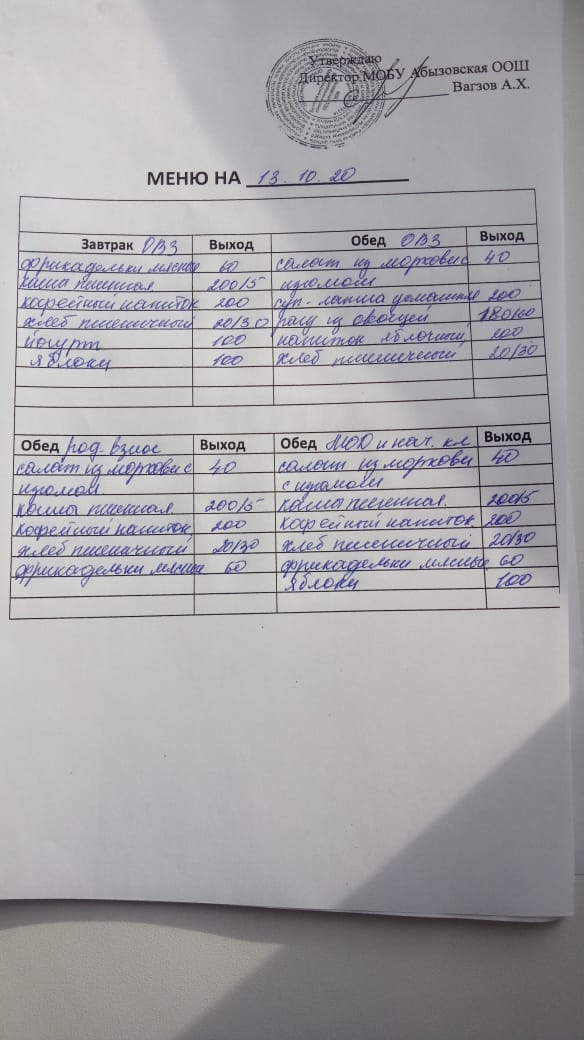 Утверждаю
Директор МОБУ Абызовская ООШ
Вагзов А.Х.
МЕНЮ НА 13.10.20
Завтрак ОВЗ Выход Обед ОВЗ Выход
фрикадельки мясные 60 салат из моркови с 40
каша пшенная 200/5 изюмом
кофейный напиток 200 суп-лапша домашняя 200
хлеб пшеничный 20/30 рагу из овощей 180/60
йогурт 100 напиток яблочный 200
яблоки 100 хлеб пшеничный 20/30
Обед род. взнос Выход Обед МОД и нач. кл Выход
салат из моркови с 40 салат из моркови 40
изюмом. с изюмом
каша пшенная 200/5 каша пшенная. 200/5
кофейный напиток 200 кофейный напиток 200
хлеб пшеничный 20/30 хлеб пшеничный 20/30
фрикадельки мясные 60 фрикадельки мясные 60
яблоки 100